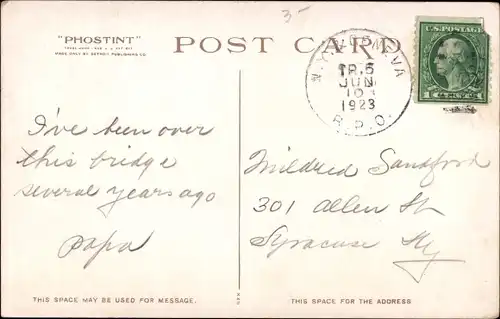 3-
"PHOSTINT"
MADE ONLY BY DETROIT PUBLISHING CO.
POST CARD
TR.5
JUN
10
1923
R.P.O.
U.S. POSTAGE
I've been over
this bridge
several years ago
Papa
Mildred Sandford
301 Allen St
Syracuse Ny
THIS SPACE MAY BE USED FOR MESSAGE.
THIS SPACE FOR THE ADDRESS